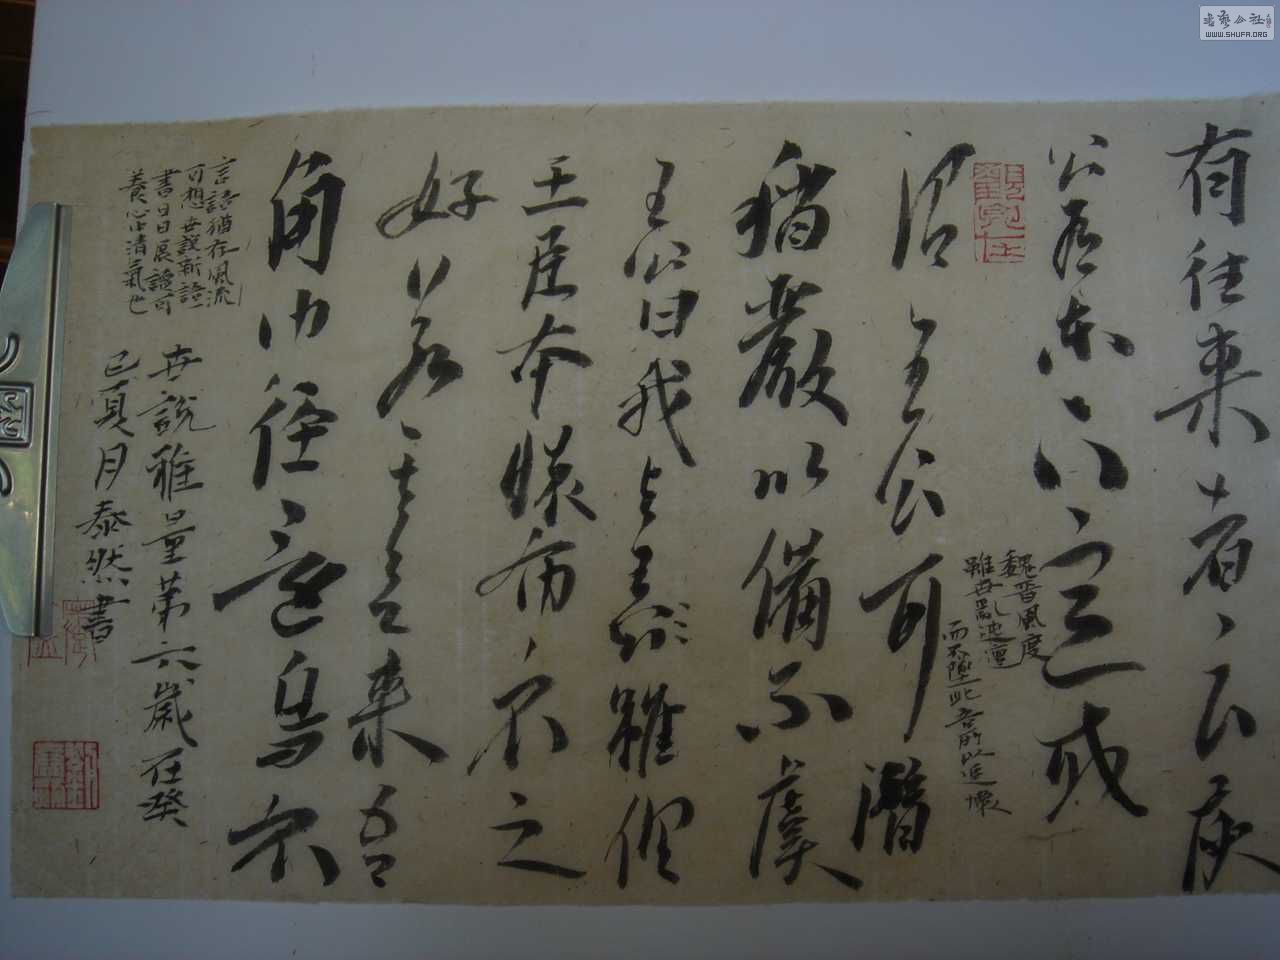 有往来者云庾
公有东下意或
謂王公可潛
魏晉風度
雖世亂迍邅
而不墜此吾所以追懷
稍嚴以備不虞
王公曰我与元規雖俱
王臣本懷布衣之
好若其欲来吾
角巾徑還烏衣
言語猶存風流
可想世說新語一
書日日展讀可
養心清氣也
世說雅量第六歲在癸
巳夏月泰然書
書藝公社
WWW.SHUFA.ORG